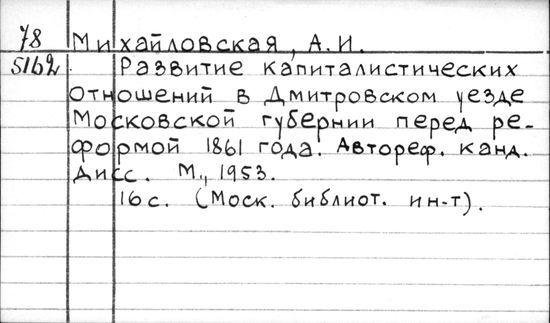 78 Михайловская, А.И.
5162 Развитие капиталистических
отношений в Дмитровском уезде
Московской губернии перед ре-
формой 1861 года. Автореф. канд.
дисс. М., 1953.
16 с. (Моск. библиот. ин-т).